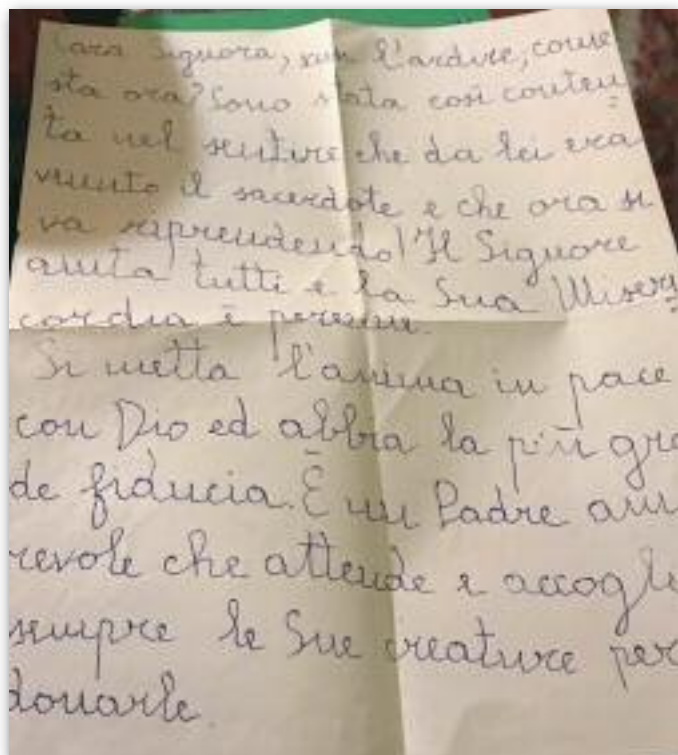 Cara Signora, l'ardire, come
sta ora? Sono stata così conten
ta nel sentire che da lei era
venuto il sacerdote e che ora si
va riprendendo! Il Signore
aiuta tutti e la Sua Miseri
cordia è perenne.
Si metta l'anima in pace
con Dio ed abbia la più gra
de fiducia. È un Padre am
revole che attende e accogli
sempre le Sue creature per
donarle.